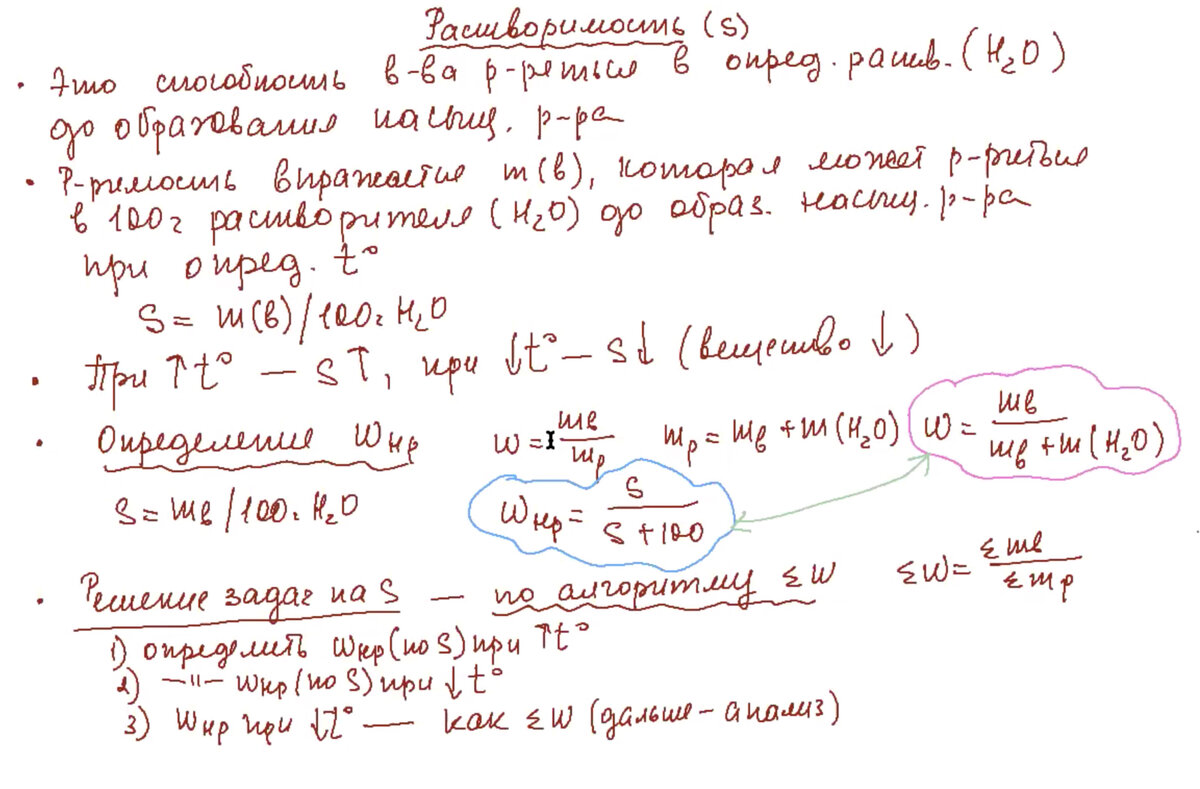 Растворимость (S)
• Это способность в-ва р-реться в опред. раств. (H₂O)
до образования насыщ. р-ра
• Р-римость выражается m(в), которая может р-риться
в 100г растворителя (H₂O) до образ. насыщ. р-ра
при опред. t°
S = m(в)/100г H₂O
• При ↑t° — S↑, при ↓t° — S↓ (вещество ↓)
• Определение Wнр W = mв/mр mр = mв + m(H₂O) W = mв/(mв + m(H₂O))
S = mв/100г H₂O Wнр = S/(S + 100)
• Решение задач на S — по алгоритму ΣW ΣW = Σmв/Σmр
1) определить Wнр (по S) при ↑t°
2) —"— Wнр (по S) при ↓t°
3) Wнр при ↓t° — как ΣW (дальше - анализ)